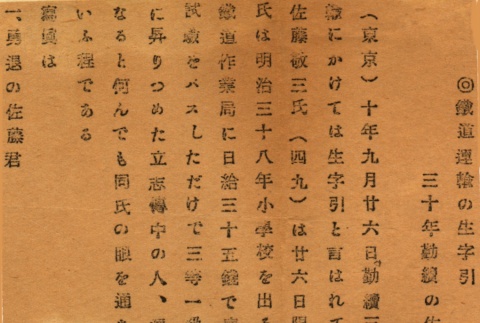 ◎鐵道運輸の生字引
三十年勤續の佐
(東京)十年九月廿六日勤續三
輸にかけては生字引と言はれて
佐藤敏三氏(四九)は廿六日限
氏は明治三十八年小學校を出る
鐵道作業局に日給三十五錢で
試驗をパスしただけで三等一級
に昇りつめた立志傳中の人、
なると何んでも同氏の眼を通
いふ程である
寫眞は
一、勇退の佐藤君